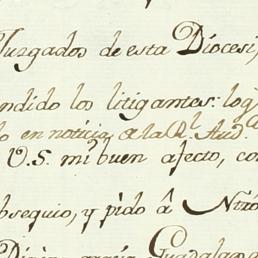 Juzgados de esta Diocesi,
ndido los litigantes: log
o en noticia a la Rl. Aud.a
V.S. mi buen afecto, co
bsequio, y pido â Ntro